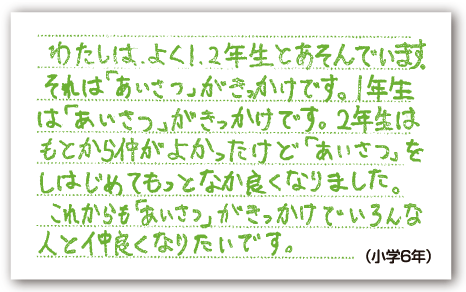 わたしは、よく1、2年生とあそんでいます。
それは「あいさつ」がきっかけです。1年生
は「あいさつ」がきっかけです。2年生は
もとから仲がよかったけど「あいさつ」を
しはじめてもっとなか良くなりました。
これからも「あいさつ」がきっかけでいろんな
人と仲良くなりたいです。
(小学6年)